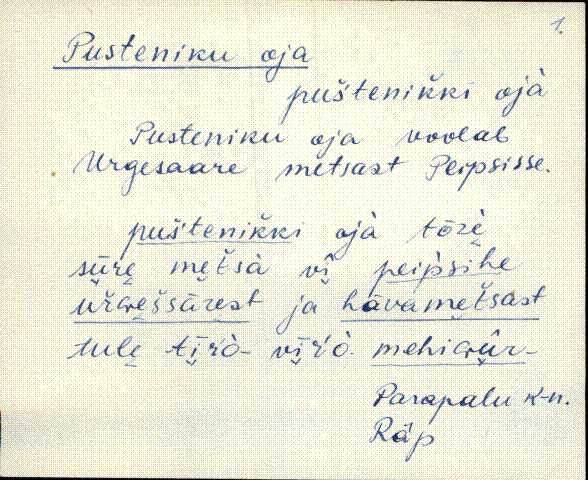 1.
Pusteniku oja
pušteniški ojà
Pusteniku oja voolab
Urgesaare metsast Peipsisse.
puštenikki ojà tōzè̬
sūre̬ me̬tšà vī peipsihe
ūrGe̬šsāre̬st ja hāvame̬tšast
tule̬ tī̬rò- vī̬rò. mehiGūr-
Parapalu k-n.
Räp